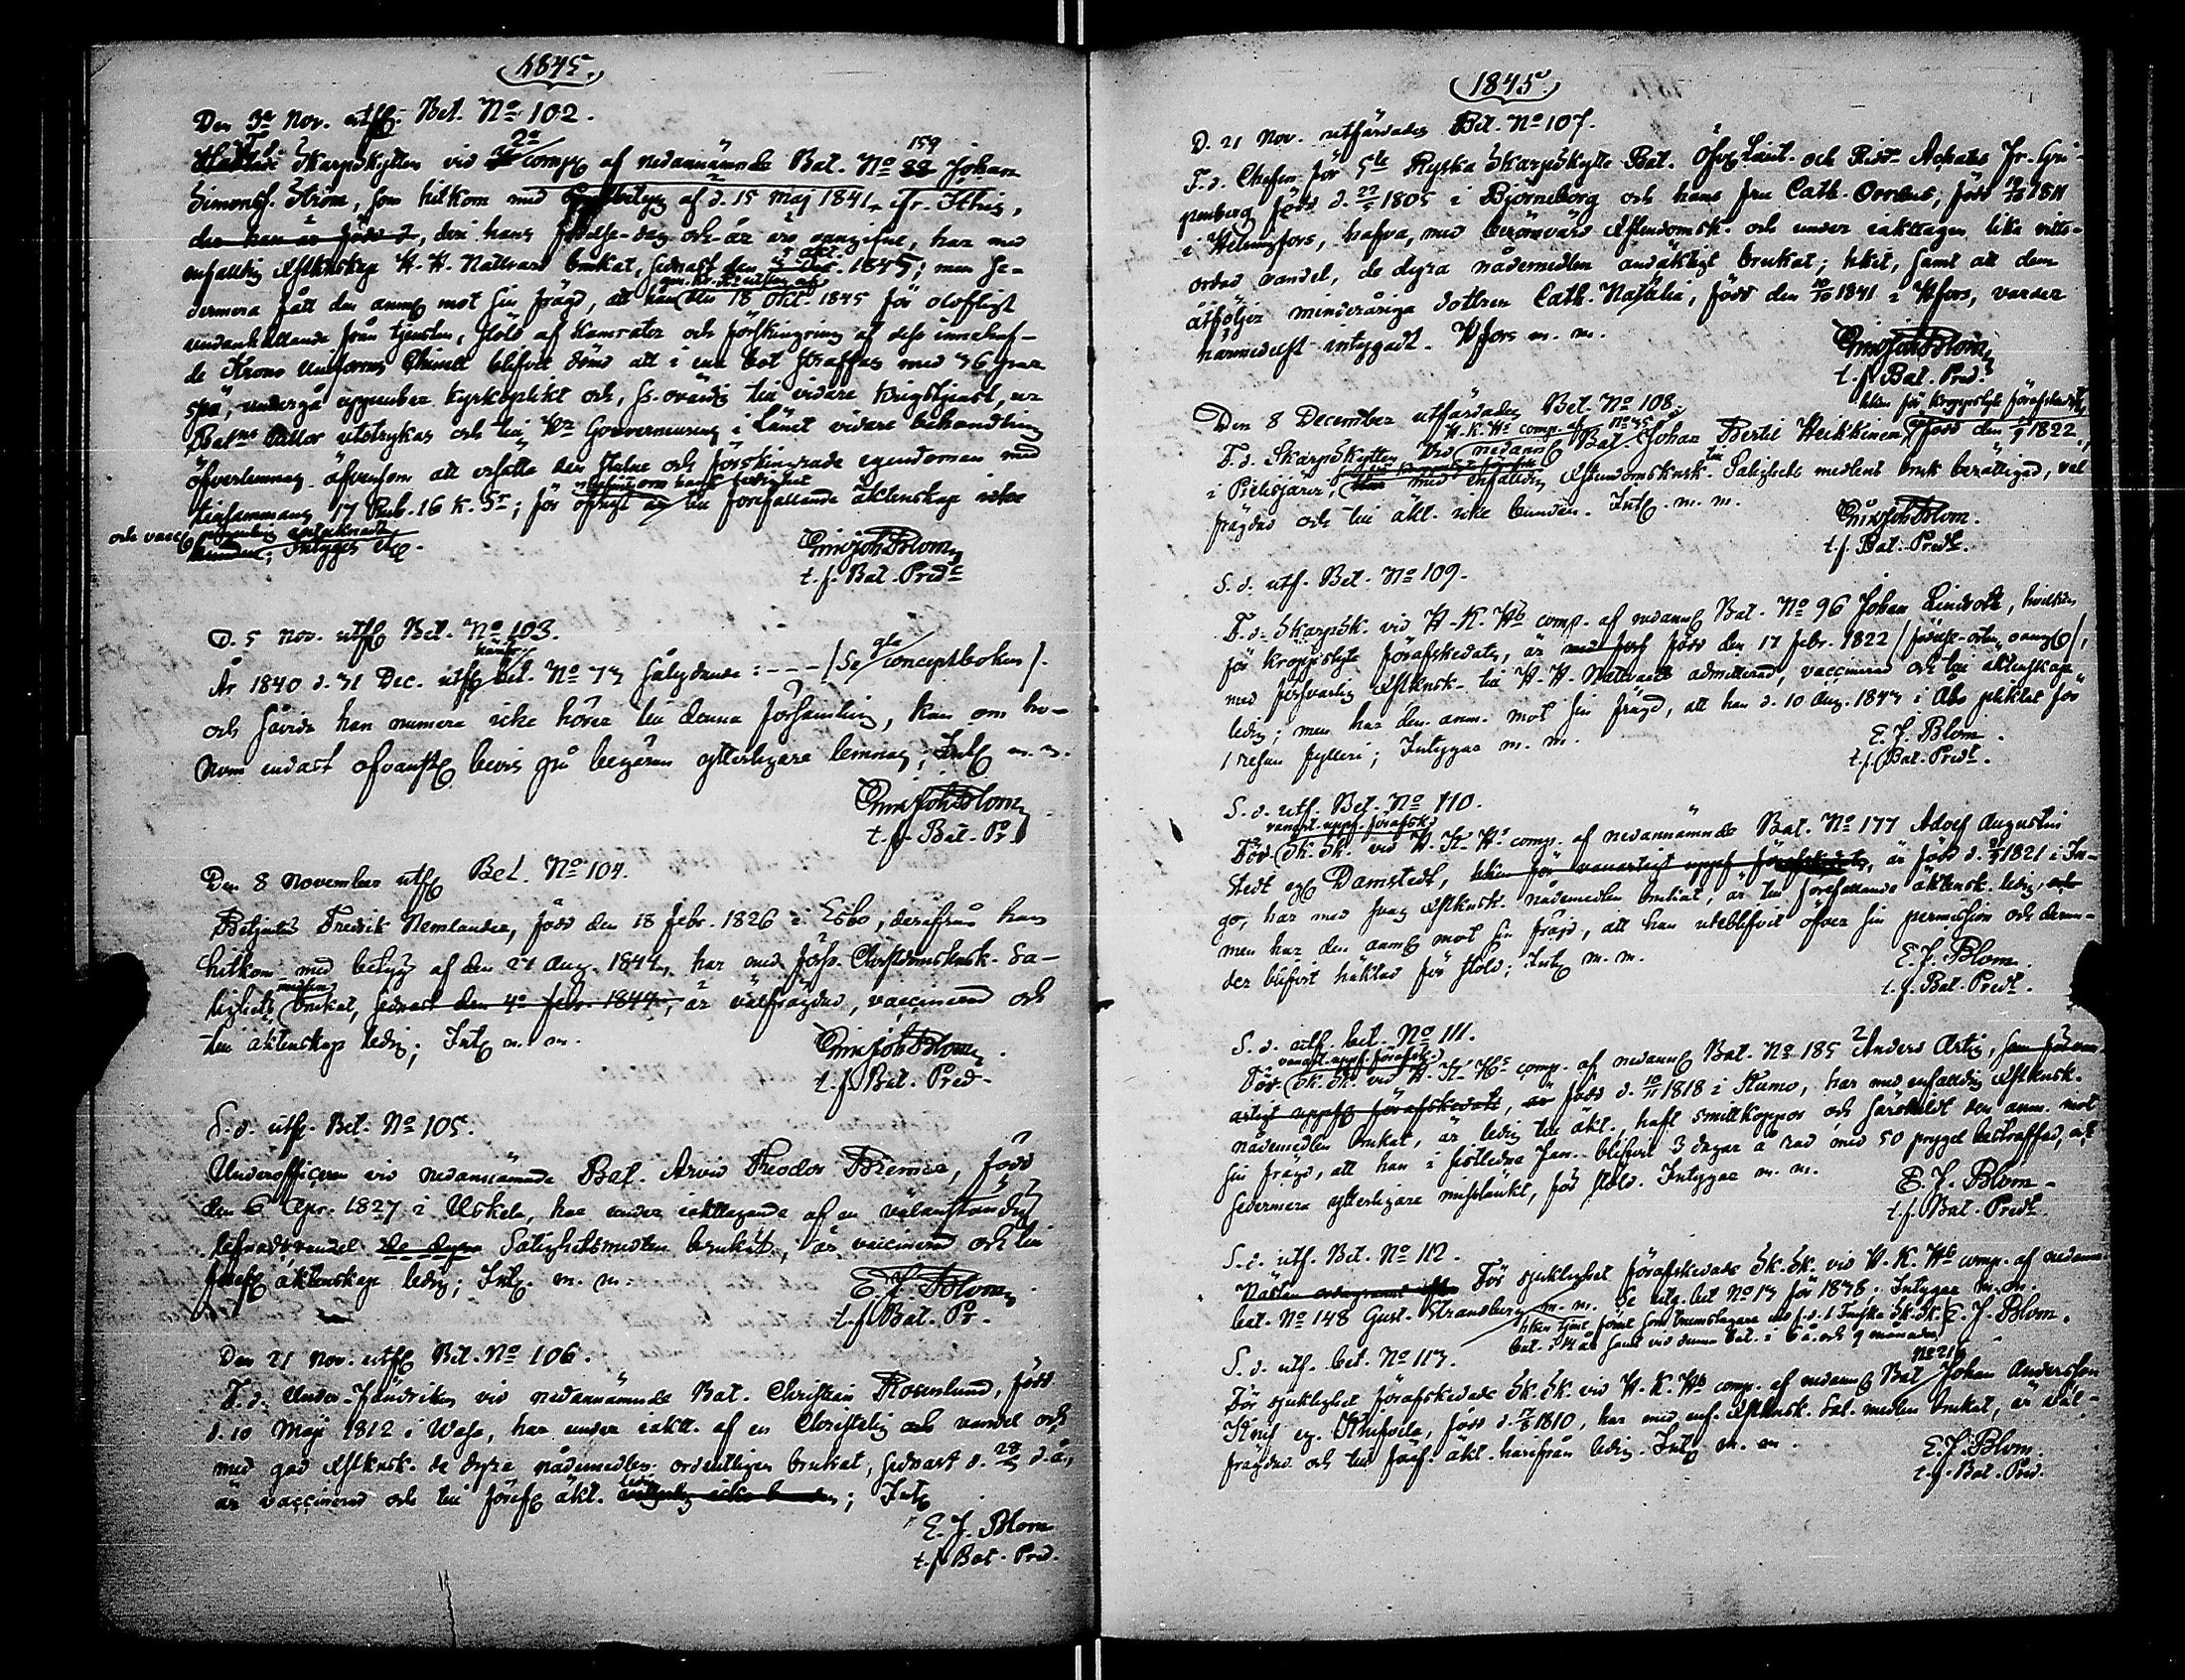 1845.
Den 3e Nov. utf. Bet. No 102.
F. d. Skarpskytten vid 2a comp. af nedannämnde Bat. No 159 Johan
Simonss. Ström, som hitkom med betyg af d. 15 Maj 1841, fr.
der han är född d, den hans födelse-dag och år ära oangifne, har med
enfaldig Xstknskp H. H. Nattvard brukat, sednast den 5 Okt. 1845; men se-
dermera fått den anm. mot sin frägd, att han den 18 Okt. 1845 för olofligt
undanhållande från tjensten, stöld af Kamrater och förskingring af dess innehaf-
de Krono Uniforms blifvit dömd att i ena bot straffas med 36 par
spö, undergå uppenbar kyrkoplikt och, ss. ovärdig till vidare krigstjenst, ur
Batns rullor utstrykas och till Hr Gouverneuren i Länet vidare behandling
öfverlemnas äfvensom att ersätta den stulna och förskingrade egendomen med
tillsammans 17 Rub. 16 K. Sr; för öfrigt till förefallande äktenskap icke
och vacc.
hinder; Intygar etc.
Emil Joh. Blom
t. f. Bat. Pred.
D. 5 Nov. utf. Bet. No 103.
År 1840 d. 31 Dec. utf. bet. No 73 sålydande: - - - (Se gla conceptboken).
och såvida han numera icke hörer till denna församling, kan om ho-
nom endast ofvanst. bevis på begäran ytterligare lemnas; Int. m. m.
Emil Joh. Blom
t. f. Bat. Pr.
Den 8 November utf. Bet. No 104.
Betjenten Fredrik Nemlander, född den 18 Febr. 1826 i Esbo, derifrån han
hitkom med betyg af den 24 Aug. 1844, har med förs. Christdomsknsk. Sa-
lighets medlen brukat, sednast den 4e Febr. 1844, är välfrägdad, vaccinerad och
till äktenskap ledig; Int. m. m.
Emil Joh. Blom
t. f. Bat. Pred.
S. d. utf. Bet. No 105.
Underofficeren vid nedannämnde Bat. Arvid Theodor Bremer, född
den 6 Apr. 1827 i Uskela, har under iakttagande af en välanständig
lefnadsvandel de dyra Salighetsmedlen brukat, är vaccinerad och till
föref. äktenskap ledig; Int. m. m.
E. J. Blom
t. f. Bat. Pr.
Den 21 Nov. utf. Bet. No 106.
F. d. Under-Fändriken vid nedannämnde Bat. Christian Rosenlund, född
d. 10 Maji 1812 i Wasa, har under iaktt. af en Christelig vandel och
med god Xstknsk. de dyra nådemedlen ordentligen brukat, sednast d. 28/5 d. å.,
är vaccinerad och till föref. äkt. ledig; Int.
E. J. Blom
t. f. Bat. Pred.
1845.
D. 21 Nov. utfärdades Bet. No 107.
F. d. Chefen för 5te Ryska Skarpskytte Bat. Öfv. Leut. och Ridd. Achates Fr. Gri-
penberg född d. 22/5 1805 i Björneborg och hans fru Cath. født 1811
i Helsingfors, hafva, med berömvärd Xstendomsk. och under iakttagen lika vitts-
ordad vandel, de dyra nådemedlen andäktigt brukat; hket, samt att dem
åtföljer minderåriga dottren Cath. Natalia, född den 10/10 1841 i Hfors, varder
härmedelst intygadt. Hfors m. m.
Emil Joh. Blom
t. f. Bat. Pred.
Den 8 December utfärdades Bet. No 108.
hken för kroppslyte förafskedats
F. d. Skarpskytten vid H. K. Hs comp. af nedann. Bat No 75 Johan Bertil Heikkinen, född den 1822
i Pielisjärvi, med enfaldig Xstendomsknsk. till Salighets medlens bruk berättigad, väl
frägdad och till äkt. icke bunden. Int. m. m.
Emil Joh. Blom.
t. f. Bat. Predt.
S. d. utf. Bet. No 109.
F. d. Skarpsk. vid H. K. Hs comp. af nedann. Bat. No 96 Johan Lindroth, hvilken
för kroppslyte förafskedats, är född den 17 Febr. 1822 (födelse-orten oang.),
med försvarlig Xstknsk. till H. H. Nattvard admitterad, vaccinerad och till äktenskap
ledig; men har den anm. mot sin frägd, att han d. 10 Aug. 1843 i Abo pliktat för
1 resan fylleri; Intygar m. m.
E. J. Blom.
t. f. Bat. Predt.
S. d. utf. Bet. No 110.
vanart. uppf. förafsk.
För Sk. Sk. vid H. K. Hs comp. af nedannämnde Bat. No 177 Adolf Augustin
Stedt eg. Damstedt, hken för vanartigt uppf. förafskedats, är född d. 1821 i In-
go, har med svag Xstknsk. nådemedlen brukat, är till förefallande äktensk. ledig,
men har den anm. mot sin frägd, att han uteblifvit öfver sin permission och derun-
der blifvit häktad för stöld; Int. m. m.
E. J. Blom.
t. f. Bat. Predt.
S. d. utf. bet. No 111.
vanart. uppf. förafsk.
För Sk. Sk. vid H. K. Hs comp. af nedann. Bat. No 185 Anders Artig, som för van-
artigt uppf. förafskedats, är född d. 10/11 1818 i Kumo, har med enfaldig Xstknsk.
nådemedlen brukat, är ledig till äkt., haft smittkoppor och särskildt den anm. mot
sin frägd, att han i sistledne Jan. blifvit 3 dagar å rad med 50 prygel bestraffad, och
sedermera ytterligare misstänkt, för stöld. Intygar m. m.
E. J. Blom.
t. f. Bat. Predt.
S. d. utf. Bet. No 112.
För sjuklighet förafskedade Sk. Sk. vid H. K. Hs comp. af nedann.
bat. No 148 Gust. Strandberg m. m. Se utg. bet No 13 för 1838; Intygar m. m.
hken tjent först som trumslagare vid f. d. 1 Finska Sk. Sk. E. J. Blom.
bat. i 14 år samt vid denna bat. i 6 år och 9 månader
S. d. utf. bet. No 113.
För sjuklighet förafskedade Sk. Sk. vid H. K. Hs comp. af nedann. Bat No 216 Johan Andersson
Knif eg. född d. 1810, har med enf. Xstknsk. Sal. medlen brukat, är väl-
frägdad och till föref. äkt. härifrån ledig. Int. m. m.
E. J. Blom.
t. f. Bat. Pred.